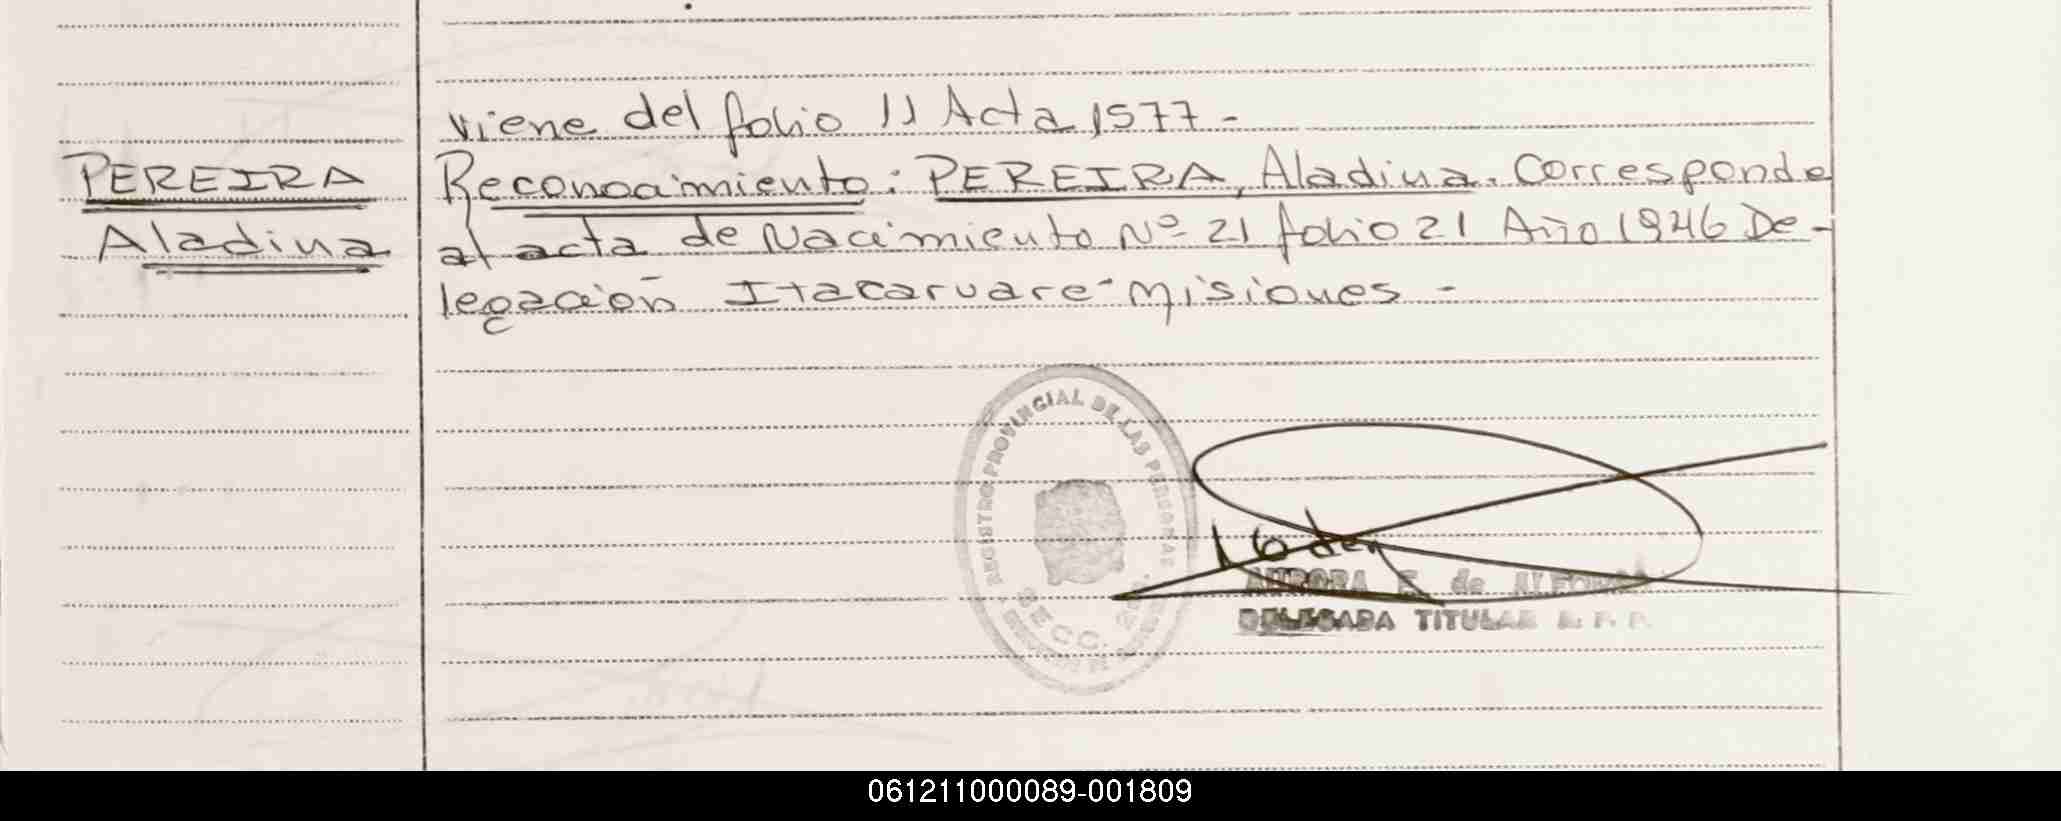 viene del folio 11 Acta 1577-
PEREIRA
Aladina
Reconocimiento: PEREIRA, Aladina. Corresponde
al acta de Nacimiento Nº 21 folio 21 Año 1946 De-
legación Itacaruare-Misiones-
REGISTRO PROVINCIAL DE LAS PERSONAS
SECC. 2
AURORA E. de
DELEGADA TITULAR R. P. P.
061211000089-001809